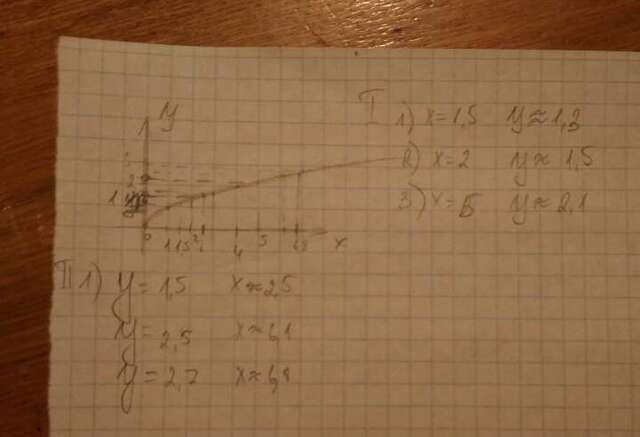 y
I 1) x=1,5 y≈1,3
2) x=2 y≈1,5
3) x=5 y≈2,1
3
2
1
0 1 1,5 2 4 5 x
II 1) y=1,5 x≈2,5
y=2,5 x≈6,1
y=2,7 x≈6,9